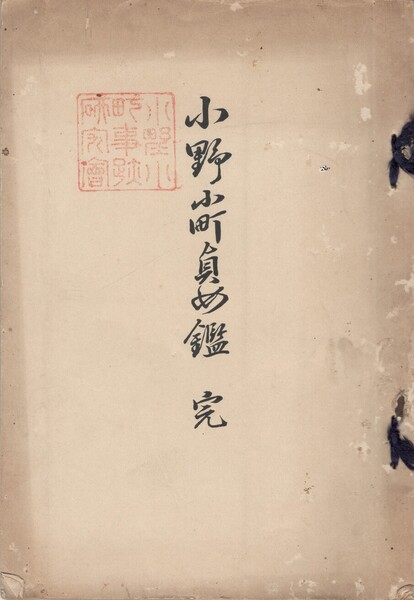 小野小町貞女鑑 完
小野小
町事跡
研究會